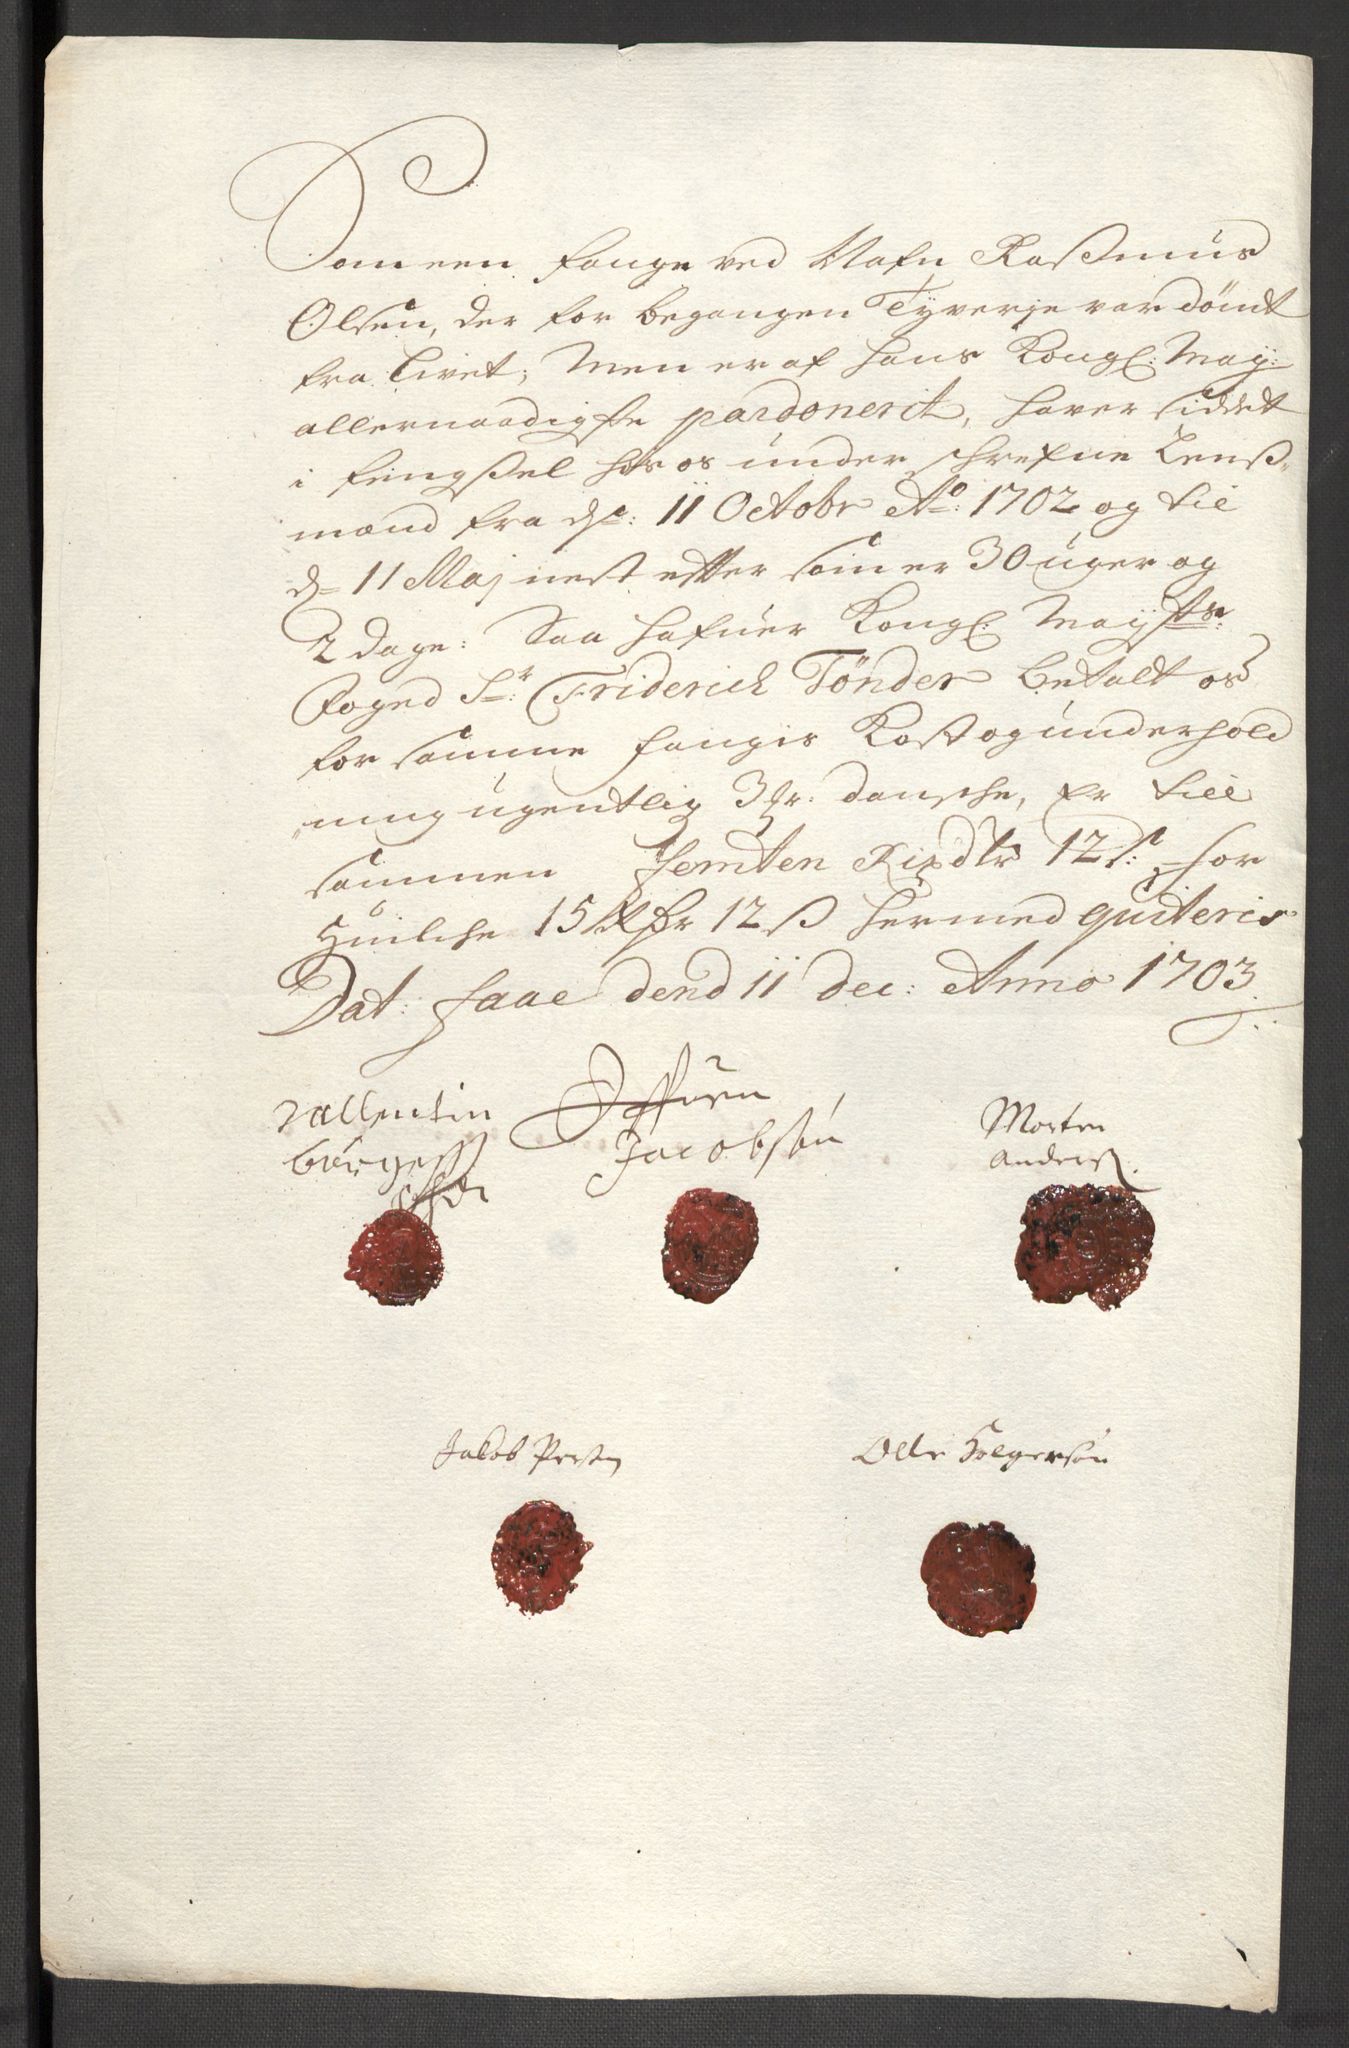 Som een fange ved Nafn Rasmus
Olsen, der for begangen Tyverje var dömt
fra Livet; Men er af hans Kongl: May:
allernaadigste pardonerit, haver siddet
i fengsel hos os under schrefne Lens-
mænd fra dn: 11 Octobr Ao: 1702 og til
dn 11 Maj nest efter som er 30 uger og
2 dage: Saa hafuer Kongl: Mayts:
Foged Sr: Friderich Tönder betalt os
for samme fanges Kost og underhold
ning ugentlig 3 dansche, Er till
sammen femten Rixdlr 12 s: for
Huilche 15 Rdr 12 s hermed quiteris
Dat: Faae dend 11 dec: Anno 1703
Vallentin
Jffuen
Morten
Börges
Jacobsön
Anders
Jakob
Olle Holgersön